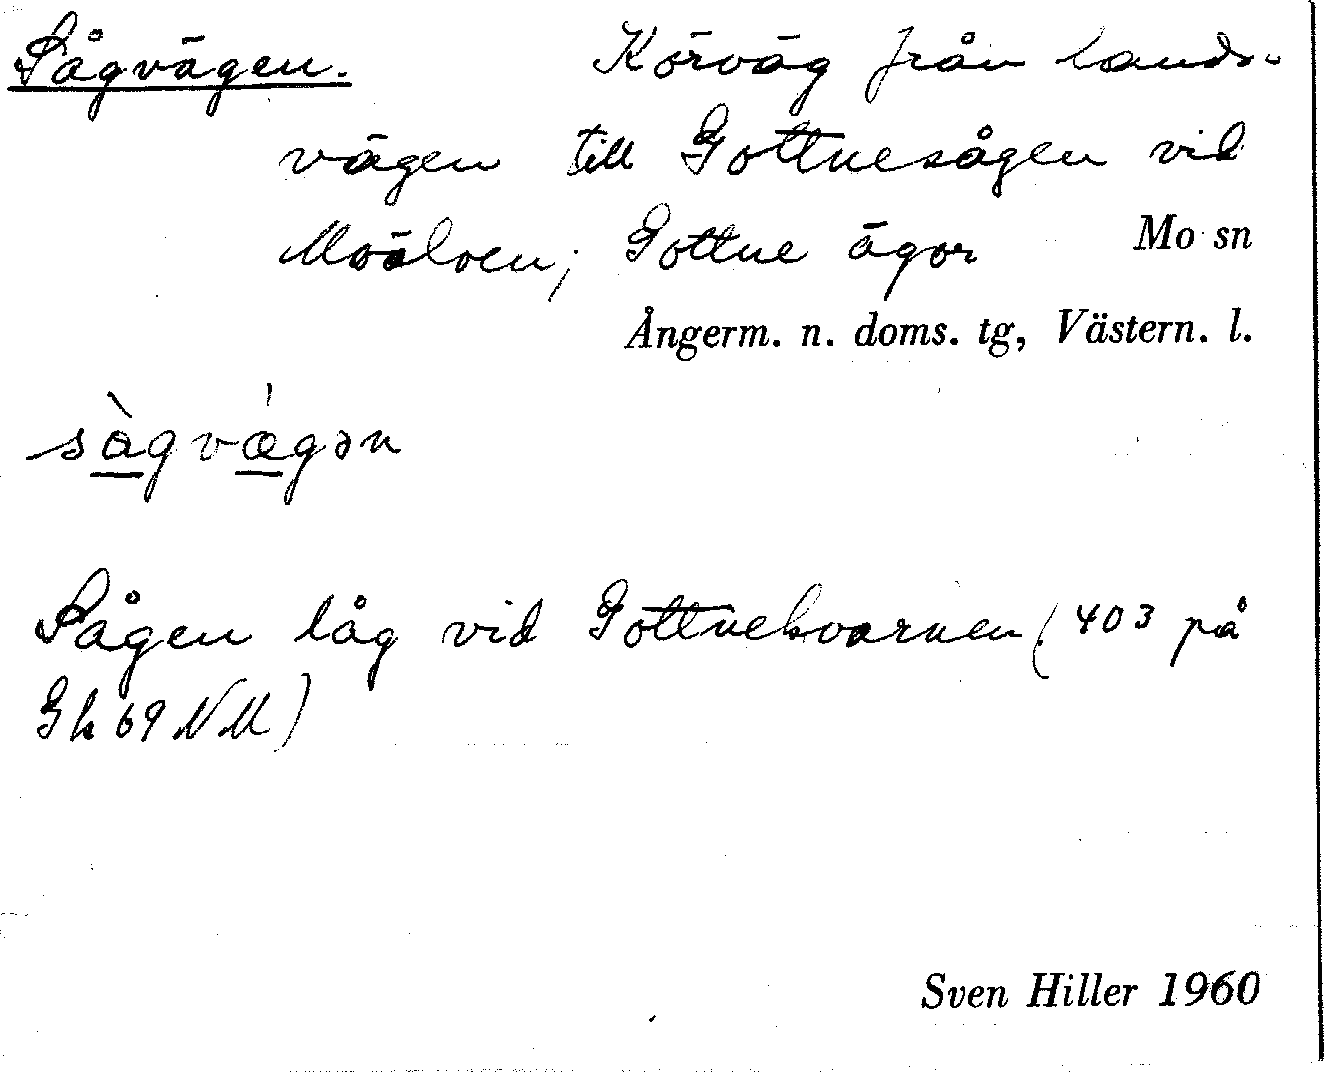 Sågvägen. Körväg från lands-
vägen till Gottnesågen vid
Moälven; Gottne ägor Mo sn
Ångerm. n. doms. tg, Västern. l.
sàgvǽgən
Sågen låg vid Gottnekvarnen (403 på
Gk 69 NM)
Sven Hiller 1960